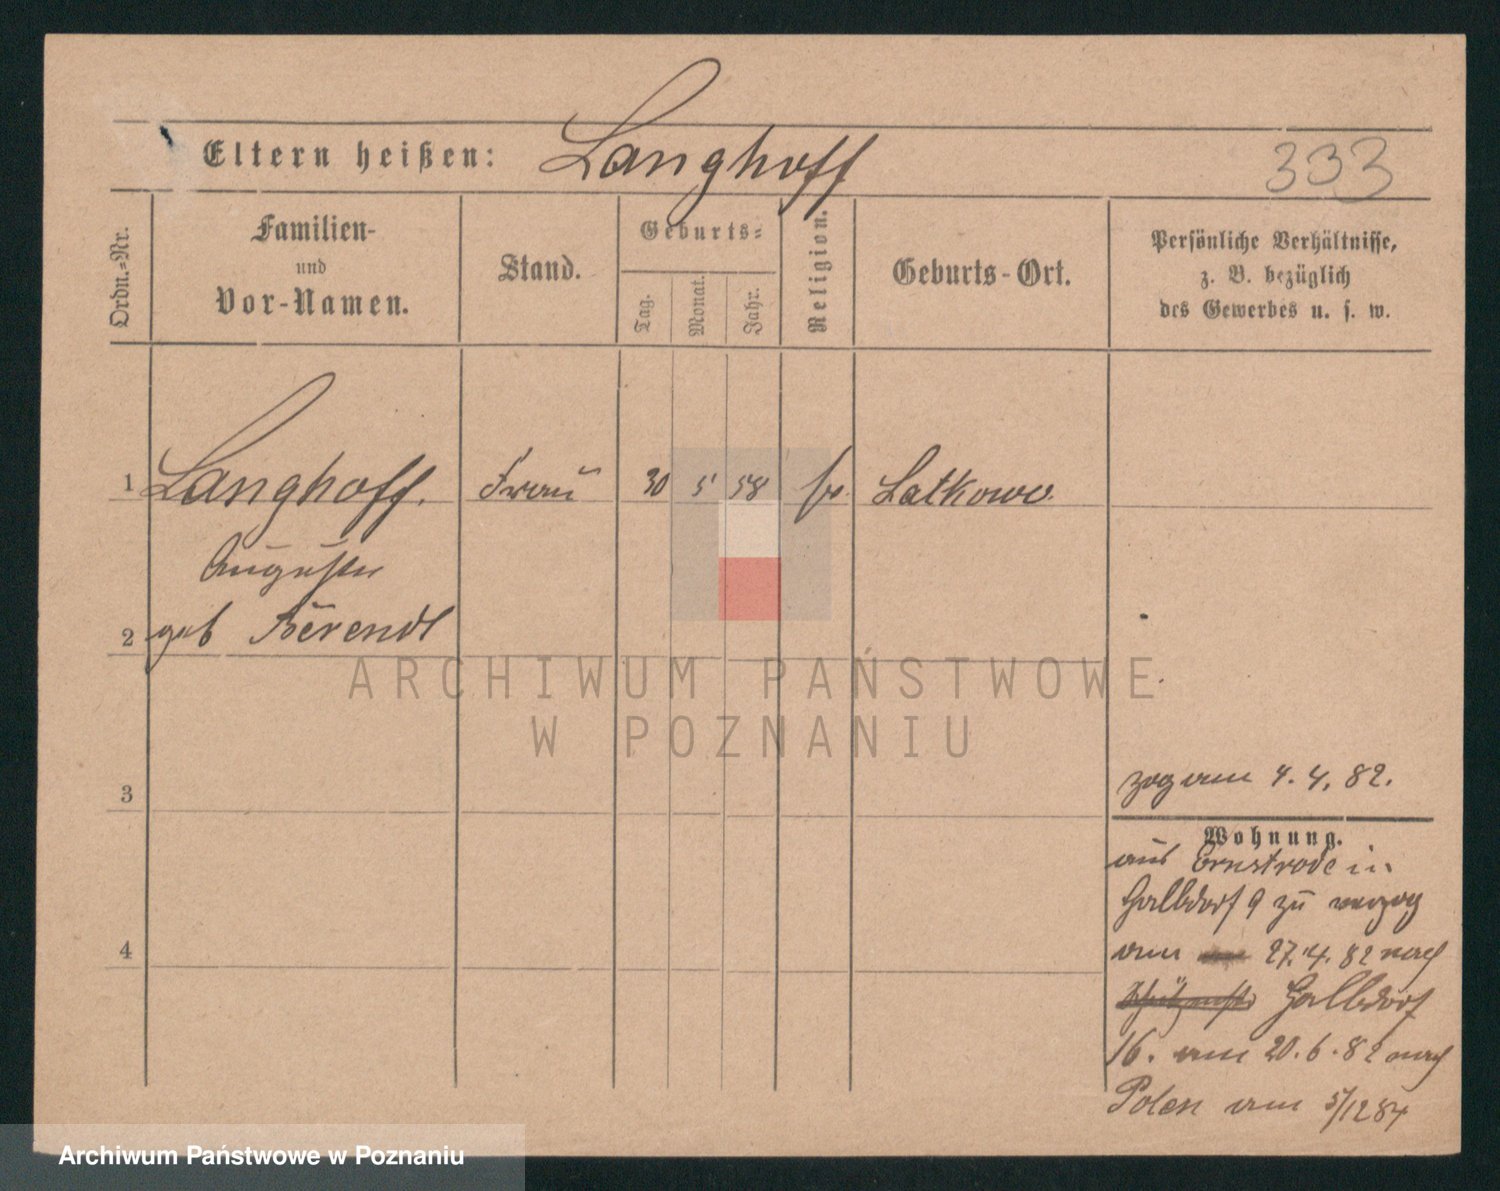 Eltern heißen: Langhoff
333
Ordn.-Nr.
Familien-
und
Vor-Namen.
Stand.
Geburts-
Tag. Monat. Jahr.
Religion.
Geburts-Ort.
Persönliche Verhältnisse,
z. B. bezüglich
des Gewerbes u. s. w.
1 Langhoff. Frau 30 5 58 Latkowo.
Auguste
2 geb Berendt
3
4
zog am 4. 4. 82.
Wohnung.
aus Ernstrode in
Halbdorf 9 zu verzog
am 27.4.82 nach
Halbdorf
16. am 20.6.82 nach
Polen am 5/12 84
ARCHIWUM PAŃSTWOWE
W POZNANIU
Archiwum Państwowe w Poznaniu